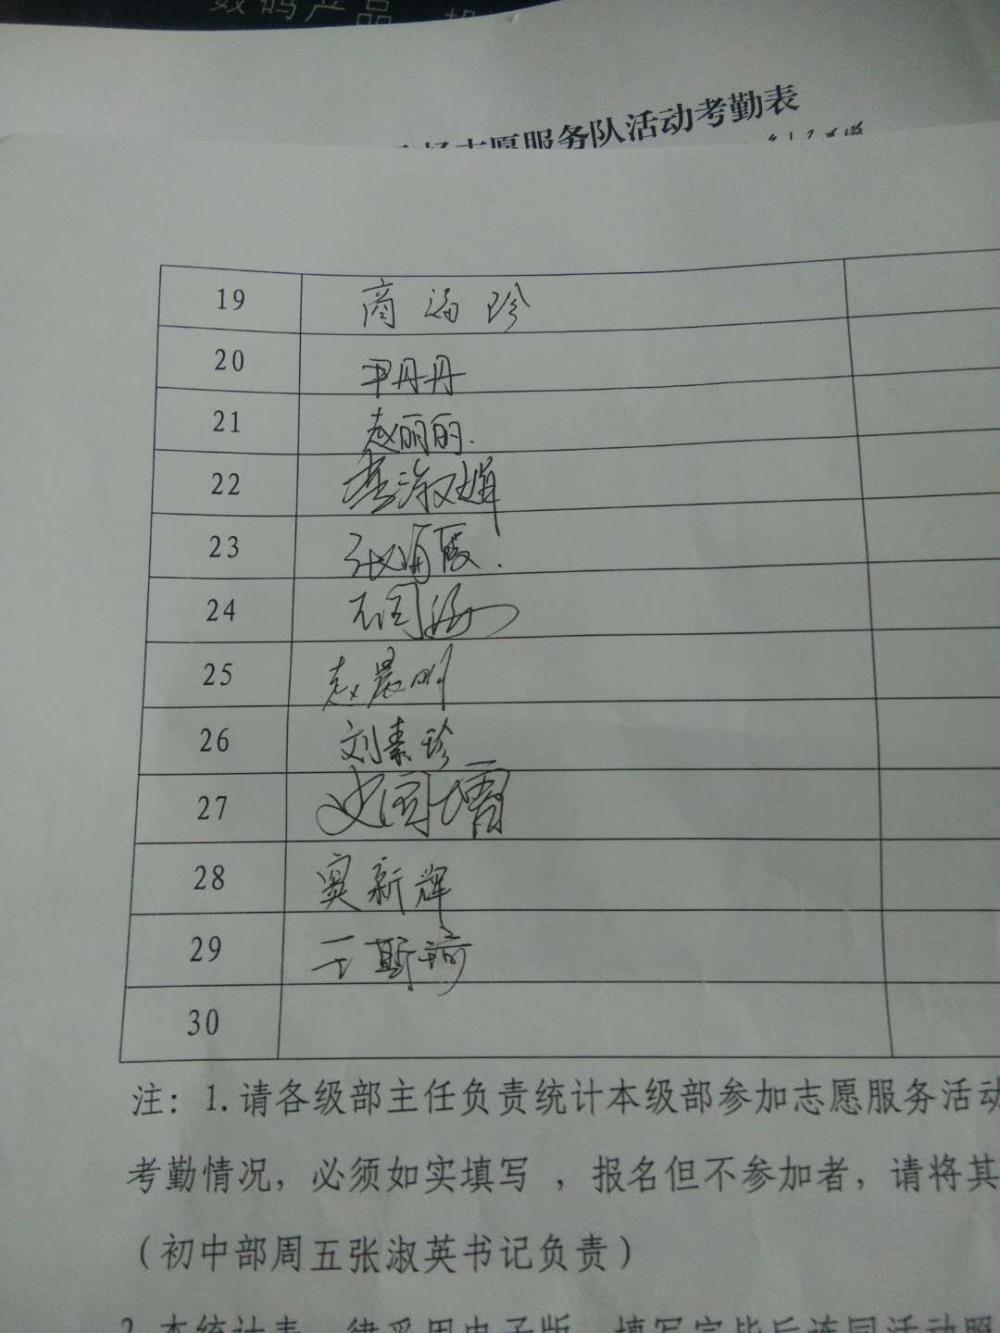 数码产品
志愿服务队活动考勤表
19 商海珍
20 尹丹丹
21 赵丽丽.
22 李淑娟
23
24
25 赵晨明
26 刘素珍
27
28 窦新辉
29 王斯琦
30
注：1.请各级部主任负责统计本级部参加志愿服务活动
考勤情况，必须如实填写，报名但不参加者，请将其
（初中部周五张淑英书记负责）
2.本统计表一律采用电子版，填写完毕后连同活动照